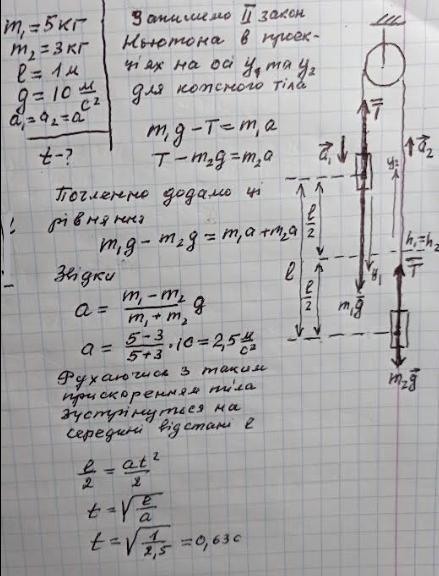 m₁=5кг
m₂=3кг
l=1м
g=10 м/с²
a₁=a₂=a
t-?
Запишемо II закон
Ньютона в проек-
ціях на осі y₁ та y₂
для кожного тіла
m₁g-T=m₁a
T-m₂g=m₂a
Почленно додамо ці
рівняння
m₁g-m₂g=m₁a+m₂a
Звідки
a = (m₁-m₂)/(m₁+m₂) g
a = (5-3)/(5+3)·10=2,5 м/с²
Рухаючись з таким
прискоренням тіла
зустрінуться на
середині відстані l
l/2 = at²/2
t = √(l/a)
t = √(1/2,5) = 0,63с
T
a₁
a₂
y₂
l/2
h₁=h₂
l
T
y₁
l/2
m₁g
m₂g